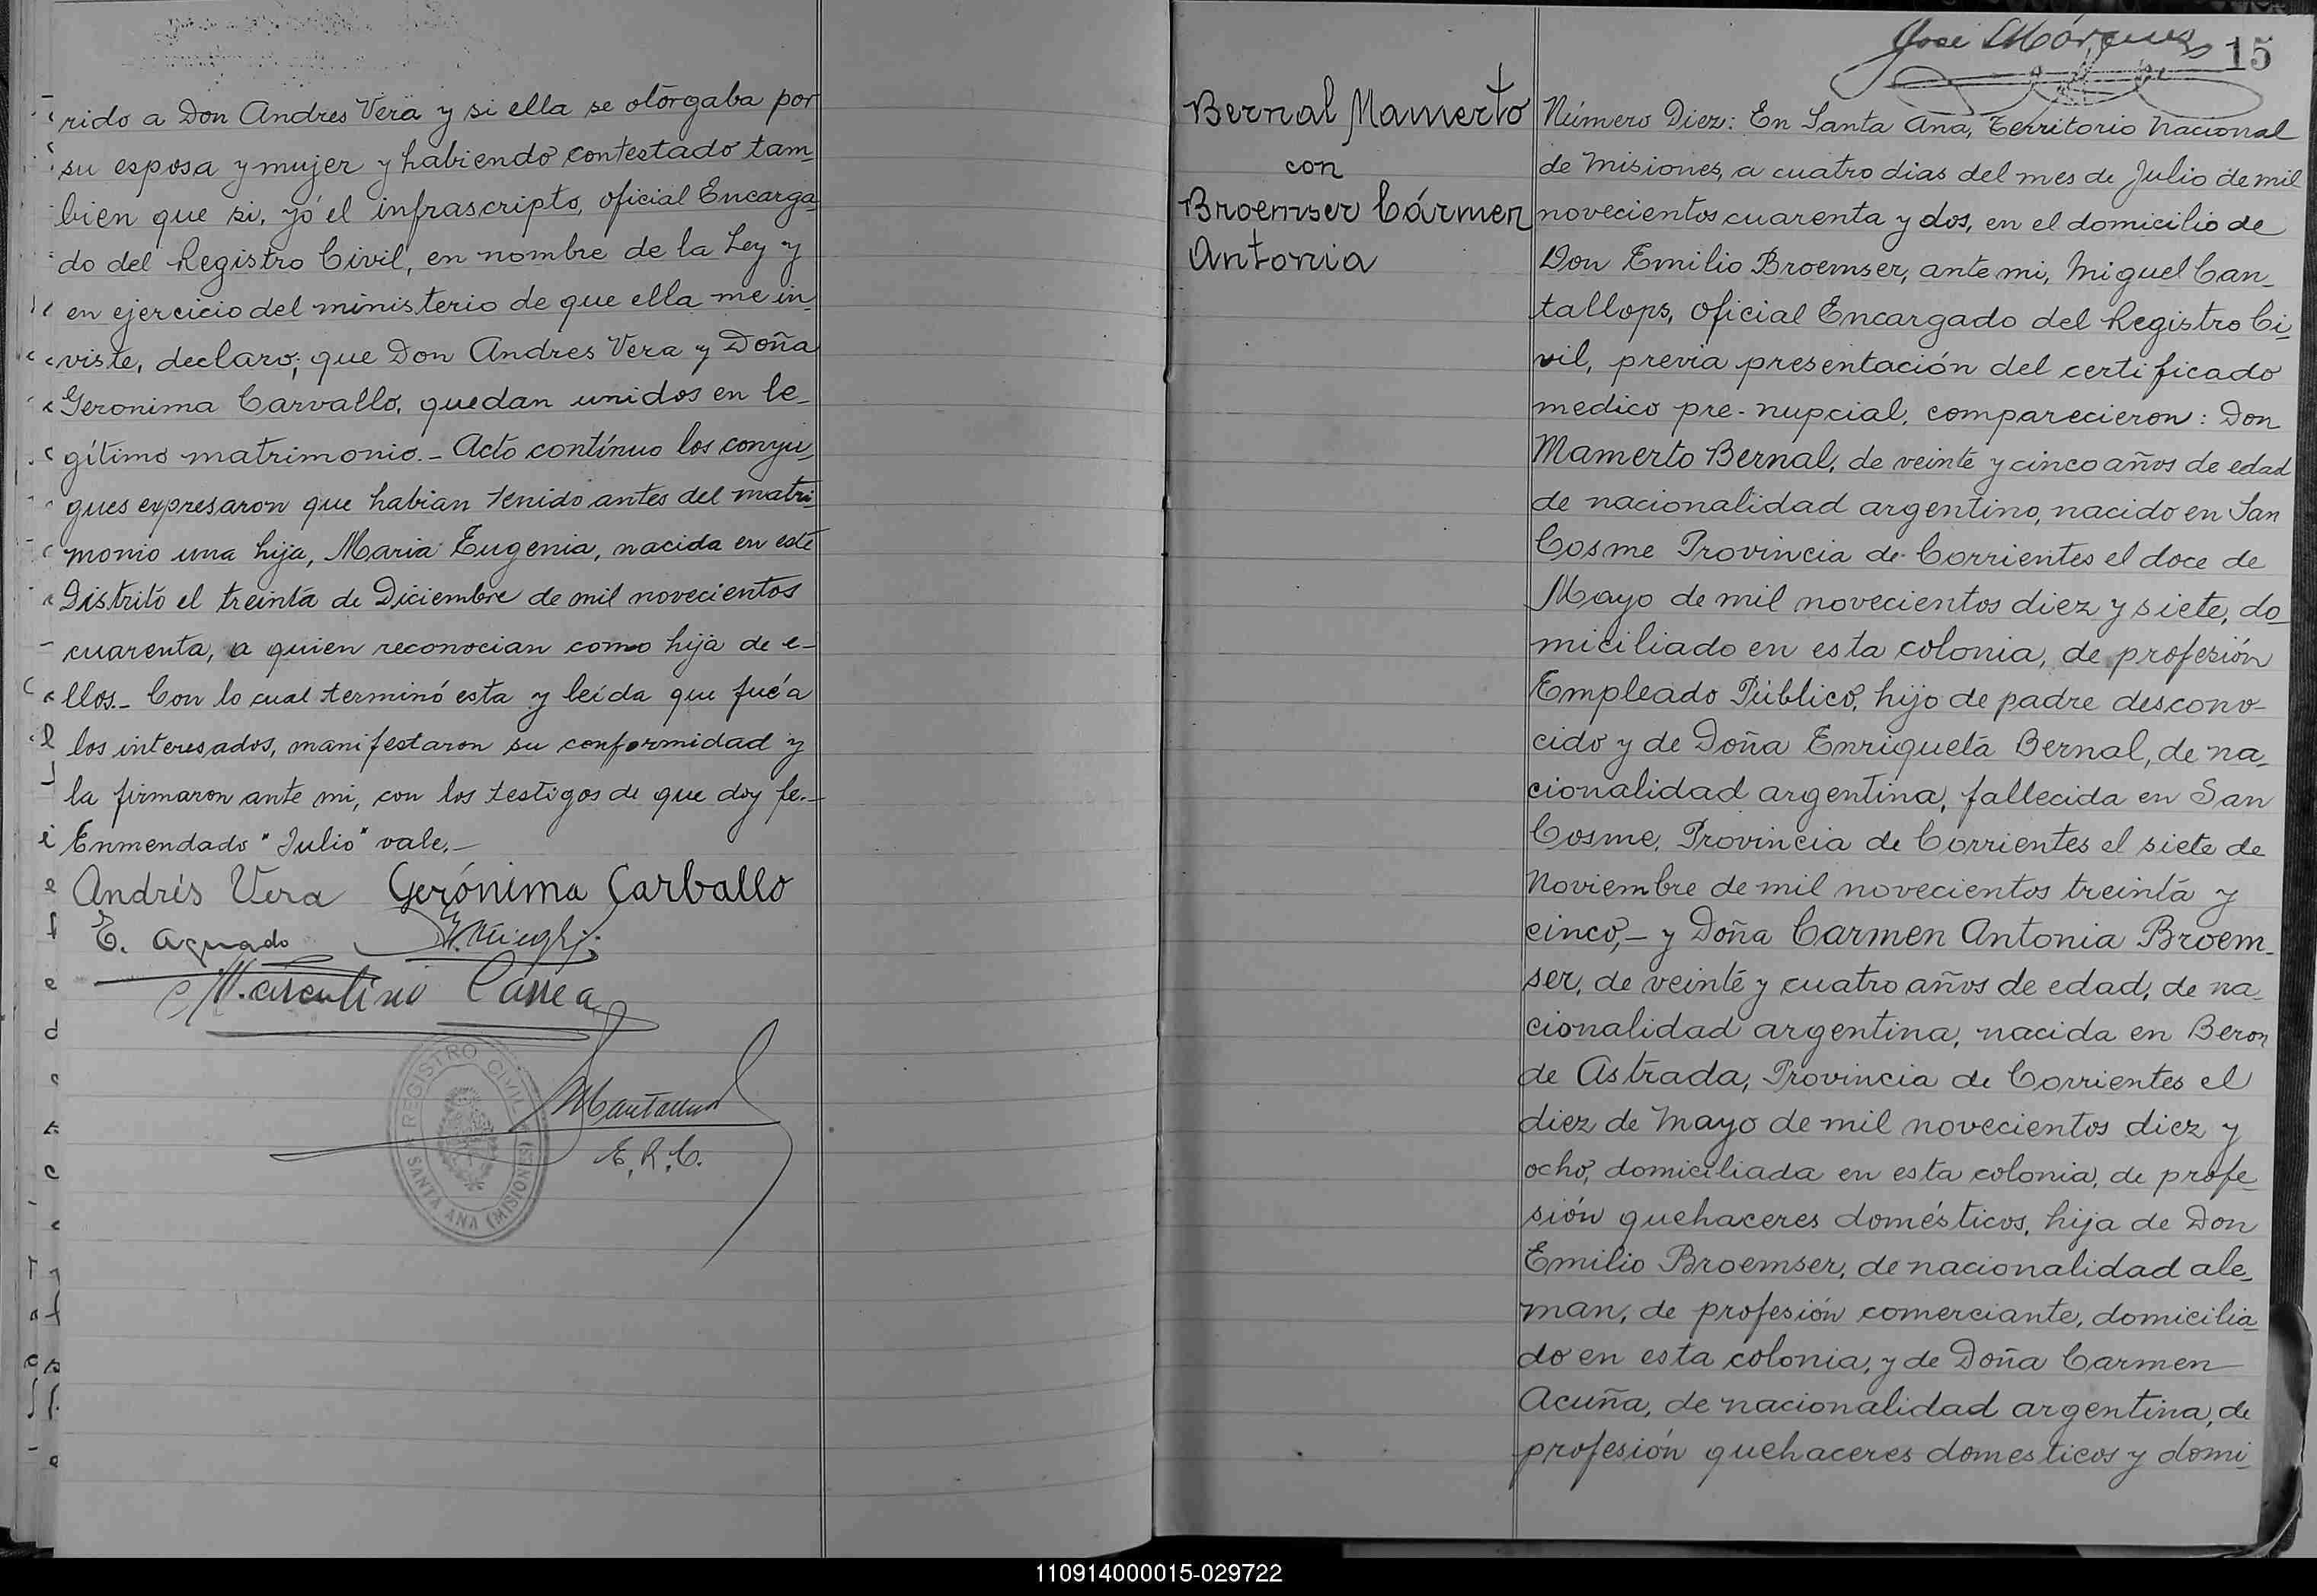 rido a Don Andres Vera y si ella se otorgaba por
su esposa y mujer y habiendo contestado tam-
bien que si, yó el infrascripto, oficial Encarga-
do del Registro Civil, en nombre de la Ley y
en ejercicio del ministerio de que ella me in-
viste, declaro; que Don Andres Vera y Doña
Geronima Carvallo, quedan unidos en le-
gítimo matrimonio.- Acto contínuo los conyu-
gues expresaron que habian tenido antes del matri-
monio una hija, Maria Eugenia, nacida en este
Distrito el treinta de Diciembre de mil novecientos
cuarenta, a quien reconocian como hija de e-
llos.- Con lo cual terminó esta y leída que fué a
los interesados, manifestaron su conformidad y
la firmaron ante mi, con los testigos de que doy fe.-
Enmendado "Julio" vale.-
Andrés Vera Gerónima Carballo
E. Aguado
REGISTRO CIVIL
SANTA ANA (MISIONES)
E.R.C.
José Márquez
15
Bernal Mamerto
con
Broemser Cármen
Antonia
Número Diez: En Santa Ana, Territorio Nacional
de Misiones, a cuatro dias del mes de Julio de mil
novecientos cuarenta y dos, en el domicilio de
Don Emilio Broemser, ante mi, Miguel Can-
tallops, oficial Encargado del Registro Ci-
vil, previa presentación del certificado
medico pre-nupcial, comparecieron: Don
Mamerto Bernal, de veinte y cinco años de edad
de nacionalidad argentino, nacido en San
Cosme Provincia de Corrientes el doce de
Mayo de mil novecientos diez y siete, do-
miciliado en esta colonia, de profesión
Empleado Público, hijo de padre descono-
cido y de Doña Enriqueta Bernal, de na-
cionalidad argentina, fallecida en San
Cosme, Provincia de Corrientes el siete de
Noviembre de mil novecientos treinta y
cinco,- y Doña Carmen Antonia Broem-
ser, de veinte y cuatro años de edad, de na-
cionalidad argentina, nacida en Beron
de Astrada, Provincia de Corrientes el
diez de Mayo de mil novecientos diez y
ocho, domiciliada en esta colonia, de profe-
sión quehaceres domésticos, hija de Don
Emilio Broemser, de nacionalidad ale-
man, de profesión comerciante, domicilia-
do en esta colonia, y de Doña Carmen
Acuña, de nacionalidad argentina, de
profesión quehaceres domesticos y domi-
110914000015-029722